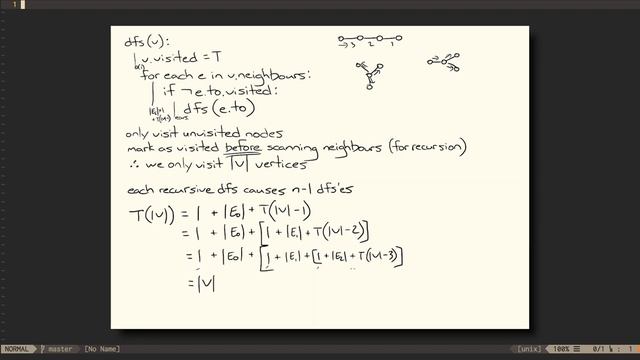 1
dfs(v):
v.visited = T
for each e in v.neighbours:
if ¬e.to.visited:
dfs(e.to)
→3 2 1
only visit unvisited nodes
mark as visited before scanning neighbours (for recursion)
∴ we only visit |V| vertices
each recursive dfs causes n-1 dfs'es
T(|V|) = 1 + |E₀| + T(|V|-1)
= 1 + |E₀| + [1 + |E₁| + T(|V|-2)]
= 1 + |E₀| + [1 + |E₁| + [1 + |E₂| + T(|V|-3)]
= |V|
NORMAL master [No Name] [unix] 100% 0/1 1